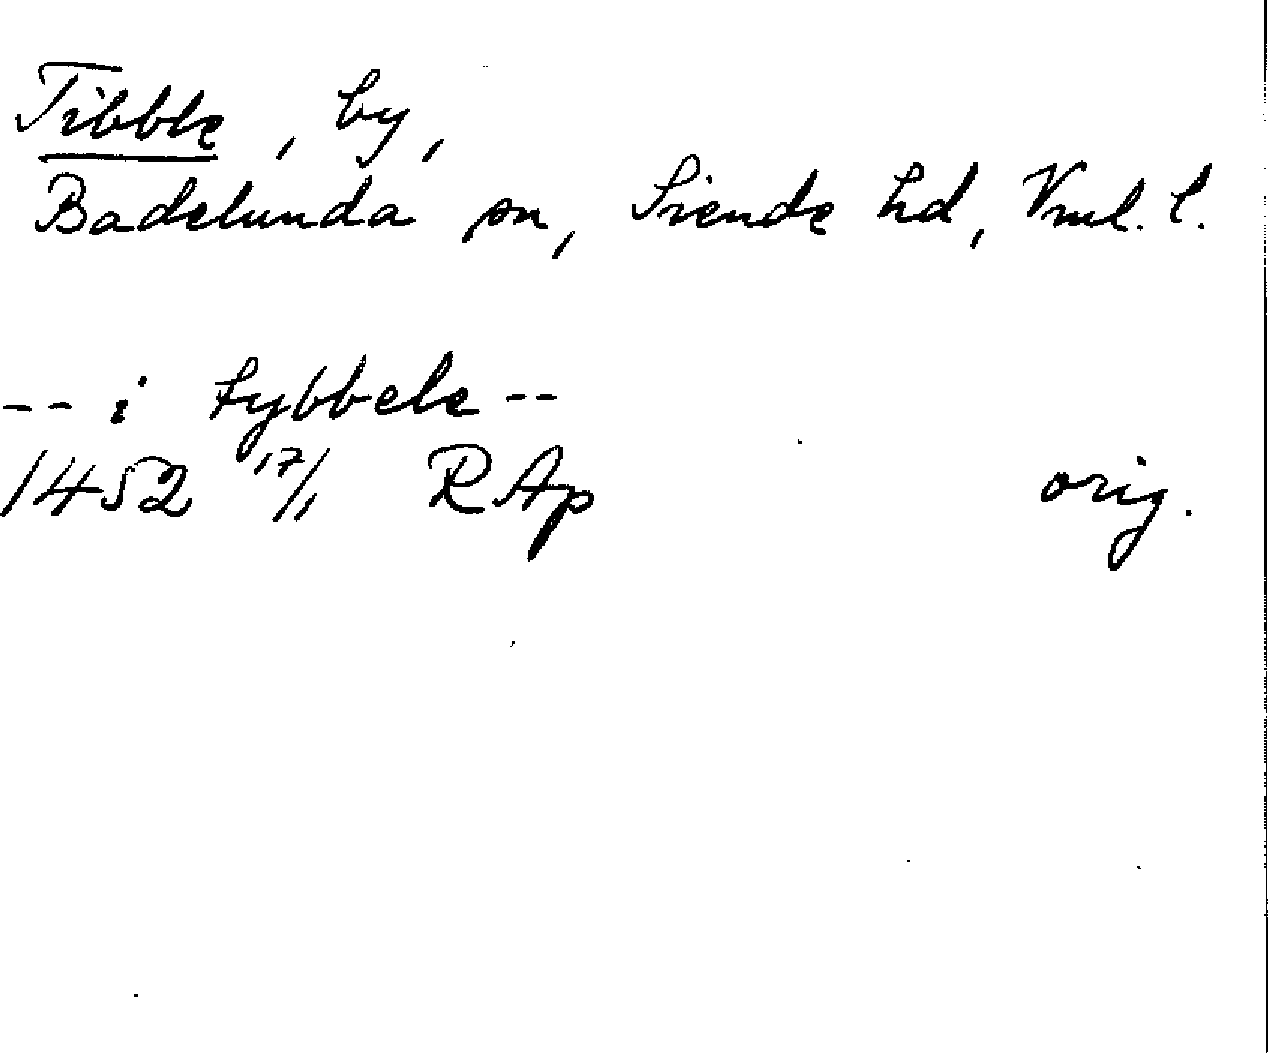 Tibble, by,
Badelunda sn, Siende hd, Vml. l.
-- i tybbele --
1452 17/1 RAp orig.